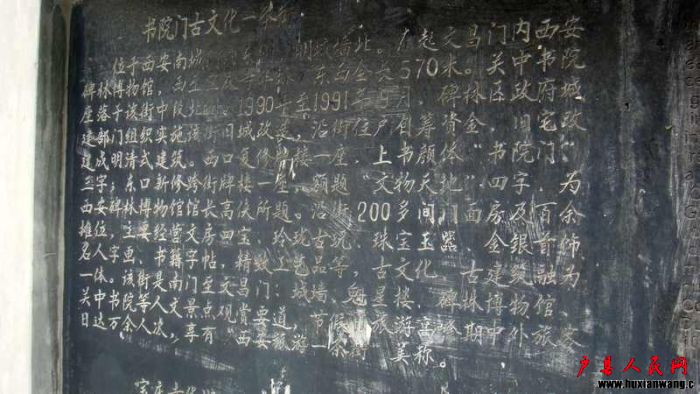 书院门古文化一条街
位于西安南城 明城墙北。东起文昌门内西安
碑林博物馆，西至 东西全长570米。关中书院
座落于该街中段北 1990年至1991年9月，碑林区政府城
建部门组织实施该街旧城改造，沿街住户自筹资金，旧宅改
建成明清式建筑。西口复修牌楼一座，上书颜体“书院门”
三字；东口新修跨街牌楼一座，额题“文物天地”四字，为
西安碑林博物馆馆长高侠所题。沿街200多间门面房及百余
摊位，主要经营文房四宝、玲珑古玩、珠宝玉器、金银首饰、
名人字画、书籍字帖，精致工艺品等，古文化、古建筑融为
一体。该街是人南门至文昌门：城墙、魁星楼、碑林博物馆、
关中书院等人文景点观赏要道，节假旅游 期中外旅客
日达万余人次，享有“西安旅游一条街”美称。
户县人民网
www.huxianwang.c